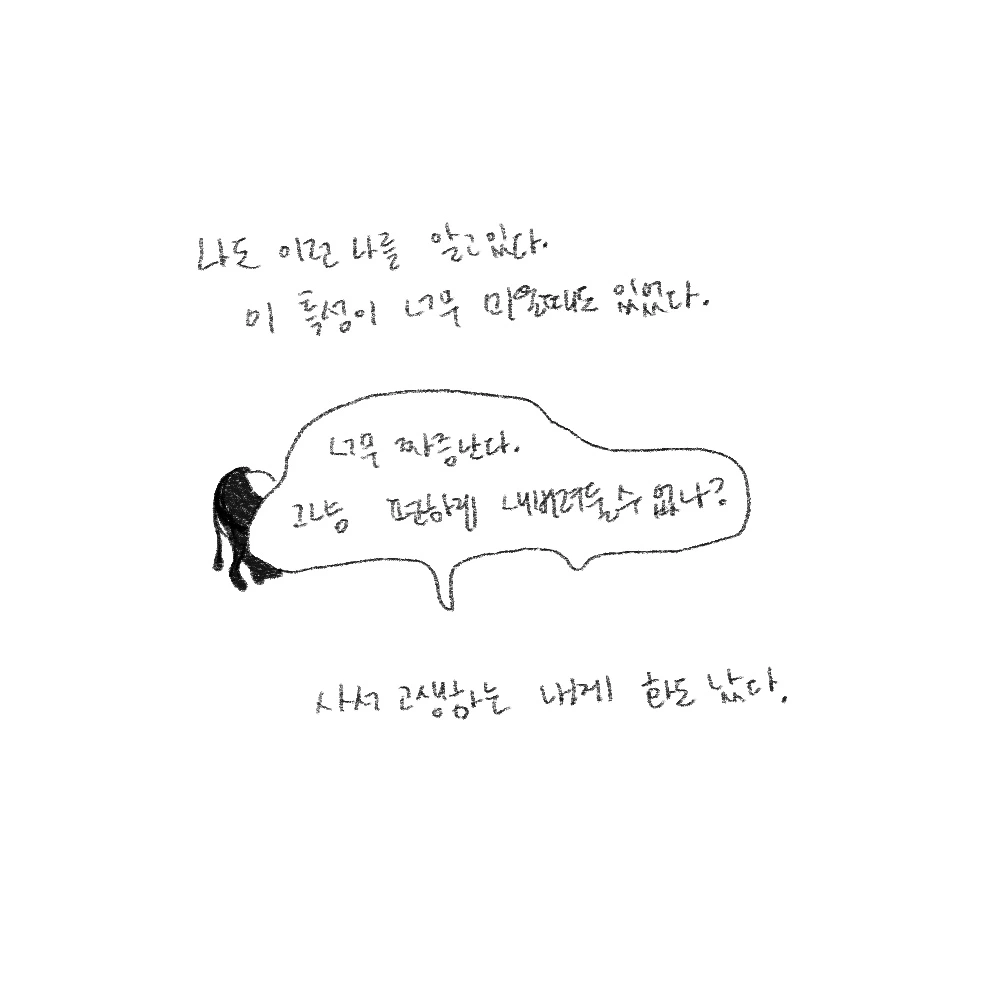 나도 이런 나를 알고있다.
이 특성이 너무 미울때도 있었다.
너무 짜증난다.
그냥 편하게 내버려둘수 없나?
사서 고생하는 내게 화도 났다.